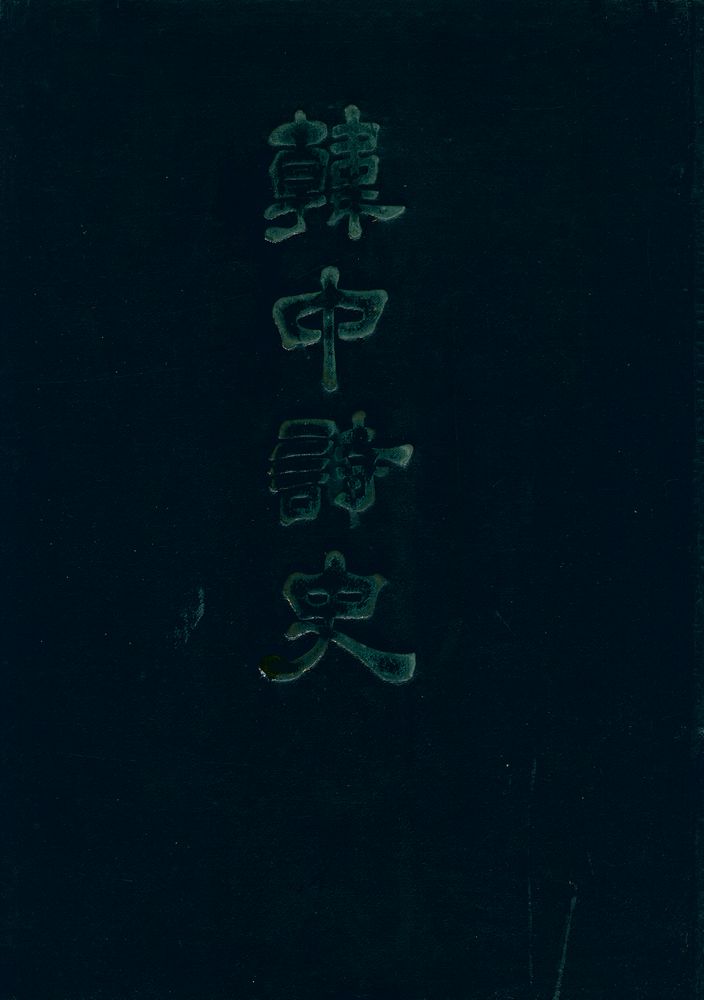 韓中詩史